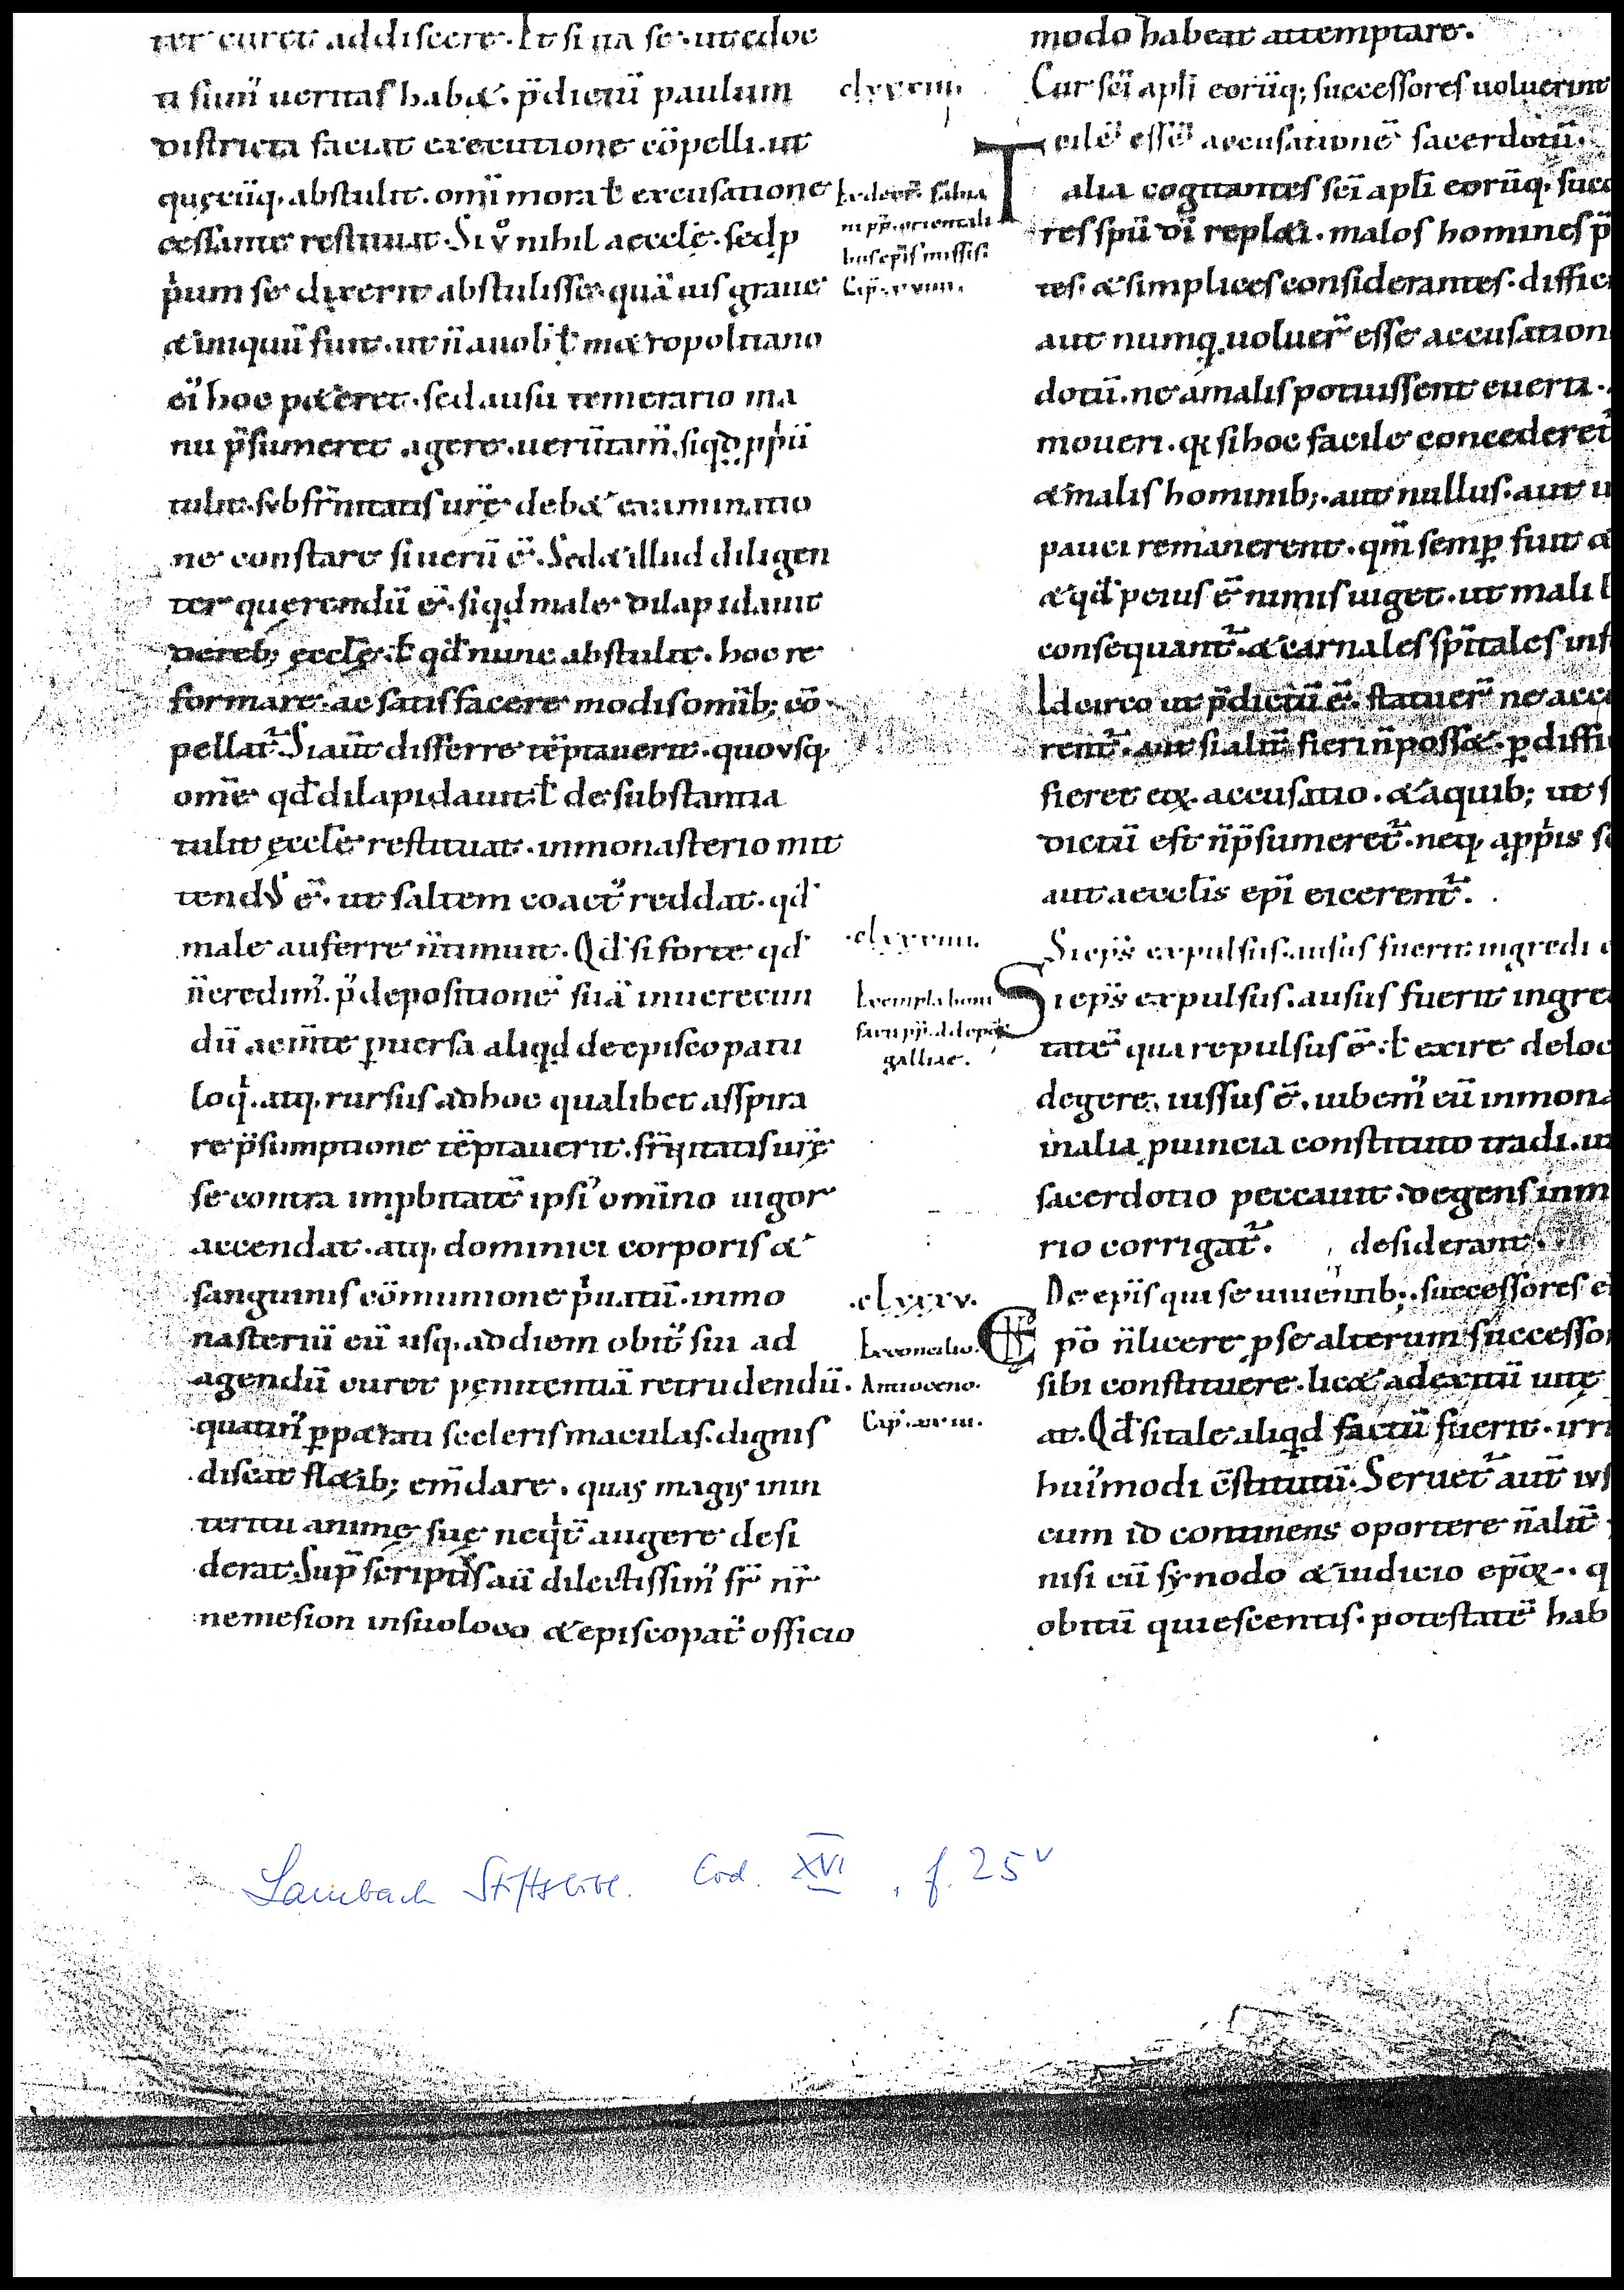 ter curet addiscere. Et si ita se. ut edoc
ti sum̄ ueritas habet. p̄dictū paulum
districta faciat executione cōpelli. ut
quęcūq; abstulit. omī mora ƚ excusatione
cessante restituat. Si v̊ nihil ęccłę. sed p
p̍um se dixerit abstulisse. quā uis graue
& iniquū fuit. ut n̄ a uob̄ ƚ metropolitano
ei᷒ hoc peteret. sed ausu temerario ma
nu p̄sumeret agere. uerūtam̄. si qd p̍pū
tulit. svb fr̄nitatis ur̄ę debet examinatio
ne constare si uerū ē. Sed & illud diligen
ter querendū ē. si qd male dilapidauit
de reb; ęccłę. ƚ qđ nunc abstulit. hoc re
formare. ac satisfacere modis omīb; cō
pellat᷑. Si aūt differre tēptauerit. quovsq;
omē qđ dilapidauit. ƚ de substantia
tulit ęccłę restituat. in monasterio mit
tend᷒ ē. ut saltem coact᷒ reddat. qđ
male auferre n̄ timuit. Qđ si forte qđ
n̄ credim᷒. p᷒ depositionē suā inuerecun
dū ac m̄te puersa aliqd de episcopatu
loq̍. atq; rursus ad hoc qualibet asspira
re p̄sumptione tēptauerit. fr̄nitatis ur̄ę
se contra imp̱bitatē ipsi᷒ omīno uigor
accendat. atq; dominici corporis &
sanguinis cōmunione p̍uatū. in mo
nasteriū eū usq; ad diem obit᷒ sui ad
agendū curet pęnitentiā retrudendū.
quatin᷒ p̱petrati sceleris maculas. dignis
discat fletib; em̄dare. quas magis in in
teritu animę suę neq̍t augere desi
derat. Sup̄ scriptus aū dilectissim᷒ fr̄ nr̄
nemesion in suo loco & episcopat᷒ officio
clxxxiii.
Ex decr̄. fabia
ni pp̄. orientali
bus ep̄is missis.
Cap̄. xviiii.
.clxxxiiii.
Exempla boni
facii pp̄. ad ep̄os
galliae.
.clxxxv.
Ex concilio.
Antioceno.
Cap̄. xxiii.
modo habeat attemptare.
Cur sc̄i apłi eorūq; successores uoluerint
cilē essē accusationē sacerdotū.
Talia cogitantes sc̄i apłi eorūq; succ
res spū dī repleti. malos homines p̄
tes. & simplices considerantes. diffic
aut numq; uoluer̄ esse accusation
dotū. ne a malis potuissent euerti.
moueri. q; si hoc facile concederet᷑
& malis hominib;. aut nullus. aut u
pauci remanerent. qm̄ semp̱ fuit &
& qđ peius ē nimis uiget. ut mali
consequant᷑. & carnales sp̄itales inf
Idcirco ut p̄dictū ē. statuer̄ ne acc
rent᷑. aut si alit̄ fieri n̄ posset. p̱diffi
fieret eoꝝ accusatio. & a quib; ut s
dictū est n̄ p̄sumeret᷑. neq; a pp̍is s
aut a ecclīs epī eicerent᷑.
Si ep̄s expulsus. ausus fuerit ingredi
Si ep̄s expulsus. ausus fuerit ingre
tatē qua repulsus ē. ƚ exire de loc
degere. iussus ē. iubem᷒ eū in mona
in alia p̱uincia constituto tradi. ut
sacerdotio peccauit. degens in m
rio corrigat᷑. desiderant.
De ep̄is qui se uiuentib;. successores
Ep̄o n̄ licere p̱ se alterum successo
sibi constituere. licet ad exitū uitę
at. Qđ si tale aliqd factū fuerit. irri
hui᷒modi c̄stitutū. Seruet᷑ aūt ivs
cum id continens oportere n̄ alit̄
nisi cū synodo & iudicio ep̄oꝝ. q
obitū quiescentis. potestatē hab
Lambach Stiftsbibl. Cod. XVI, f. 25v